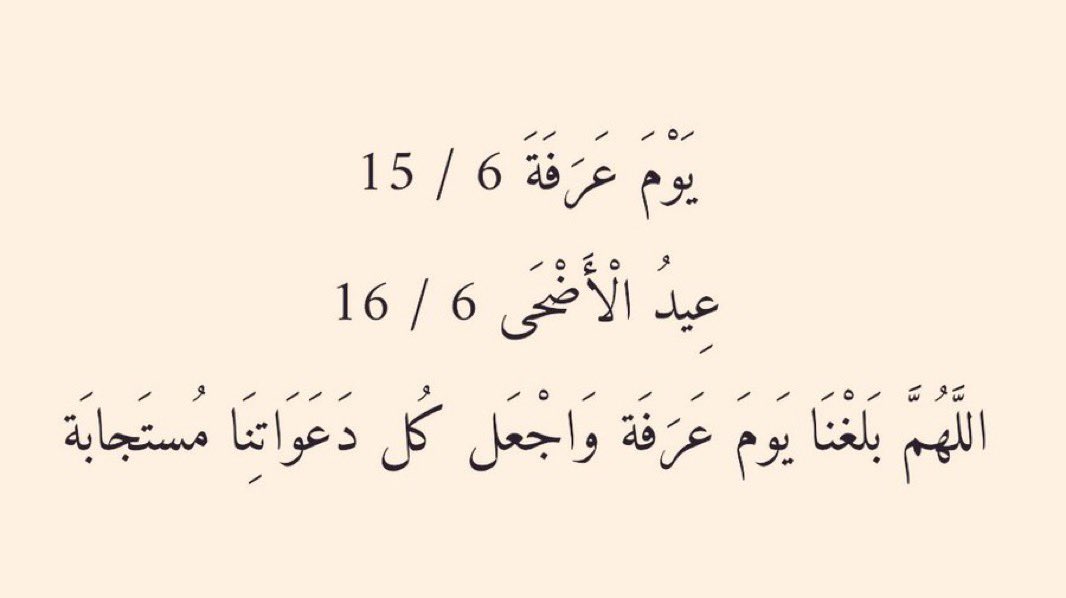 يَوْمَ عَرَفَةَ 6 / 15
عِيدُ الْأَضْحَى 6 / 16
اللَّهُمَّ بَلَغْنَا يَومَ عَرَفَة وَاجْعَل كُل دَعَوَاتِنَا مُستَجابَة